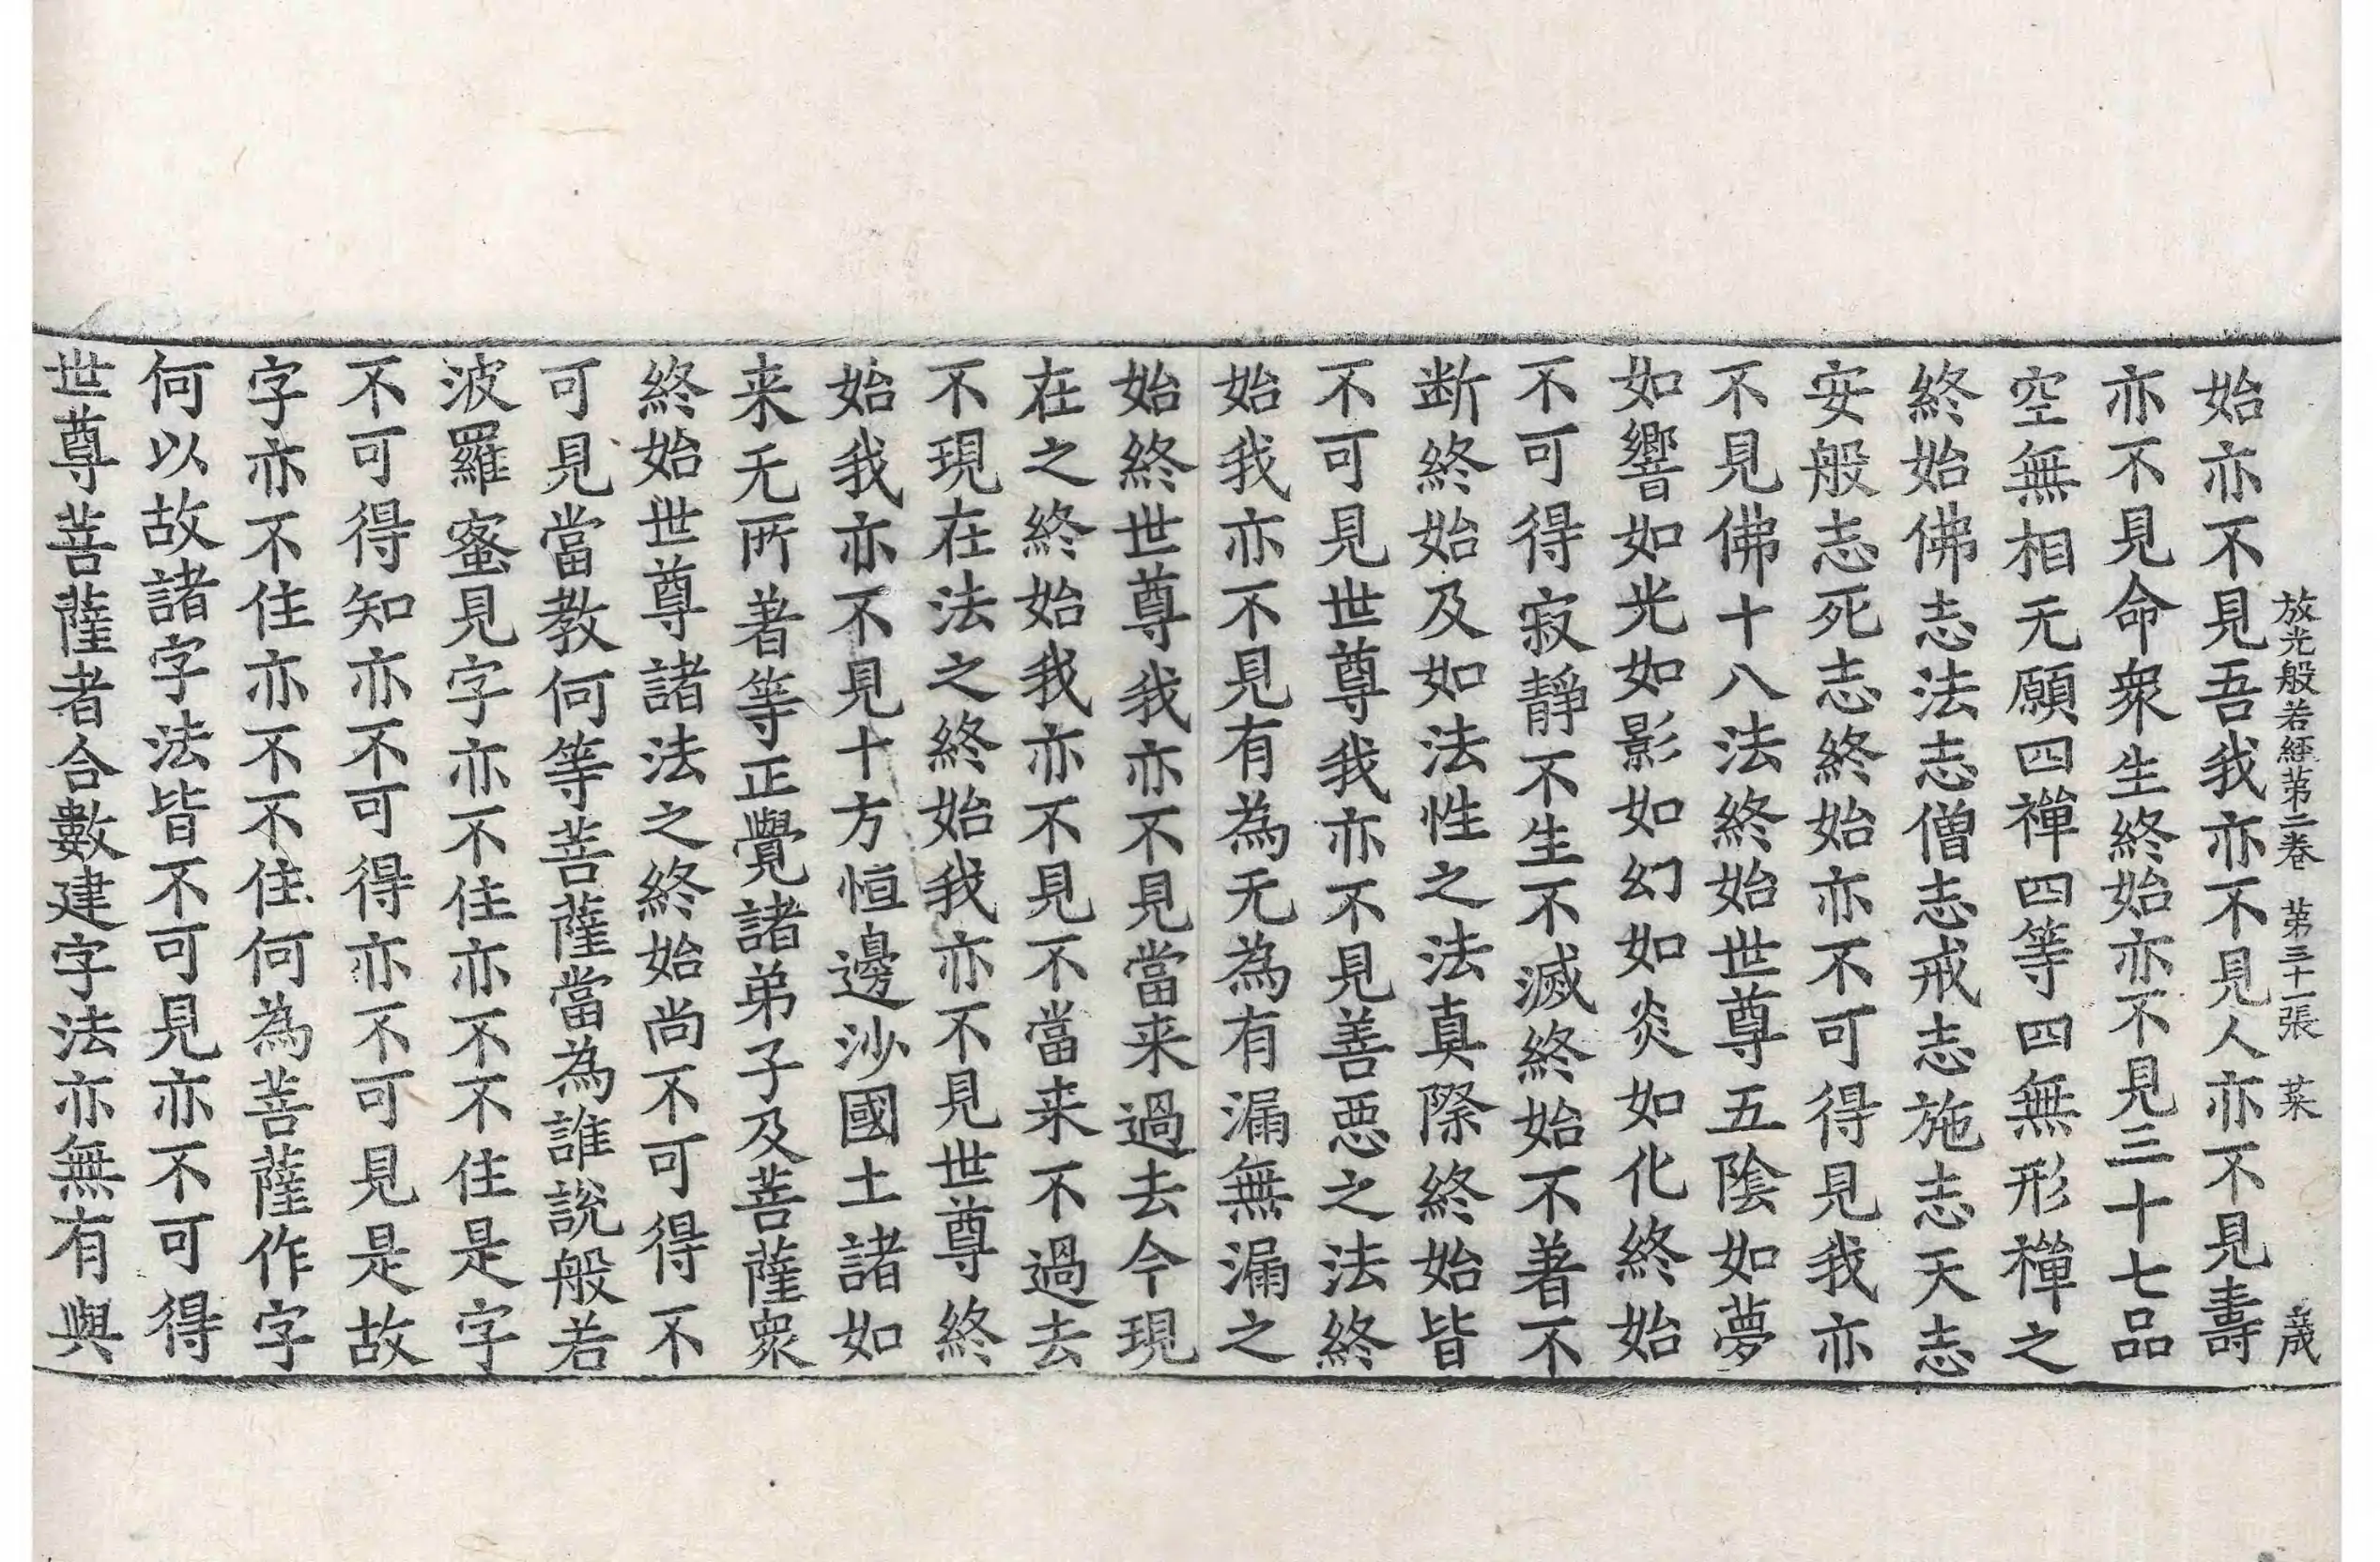 放光般若經苐二卷 苐三十一張 菜
始亦不見吾我亦不見人亦不見壽
亦不見命衆生終始亦不見三十七品
空無相无願四禪四等四無形禪之
終始佛志法志僧志戒志施志天志
安般志死志終始亦不可得見我亦
不見佛十八法終始世尊五陰如夢
如響如光如影如幻如炎如化終始
不可得寂靜不生不滅終始不著不
断終始及如法性之法真際終始皆
不可見世尊我亦不見善惡之法終
始我亦不見有為无為有漏無漏之
始終世尊我亦不見當来過去今現
在之終始我亦不見不當来不過去
不現在法之終始我亦不見世尊終
始我亦不見十方恒邊沙國土諸如
来无所著等正覺諸弟子及菩薩衆
終始世尊諸法之終始尚不可得不
可見當教何等菩薩當為誰說般若
波羅蜜見字亦不住亦不不住是字
不可得知亦不可得亦不可見是故
字亦不住亦不不住何為菩薩作字
何以故諸字法皆不可見亦不可得
世尊菩薩者合數建字法亦無有與